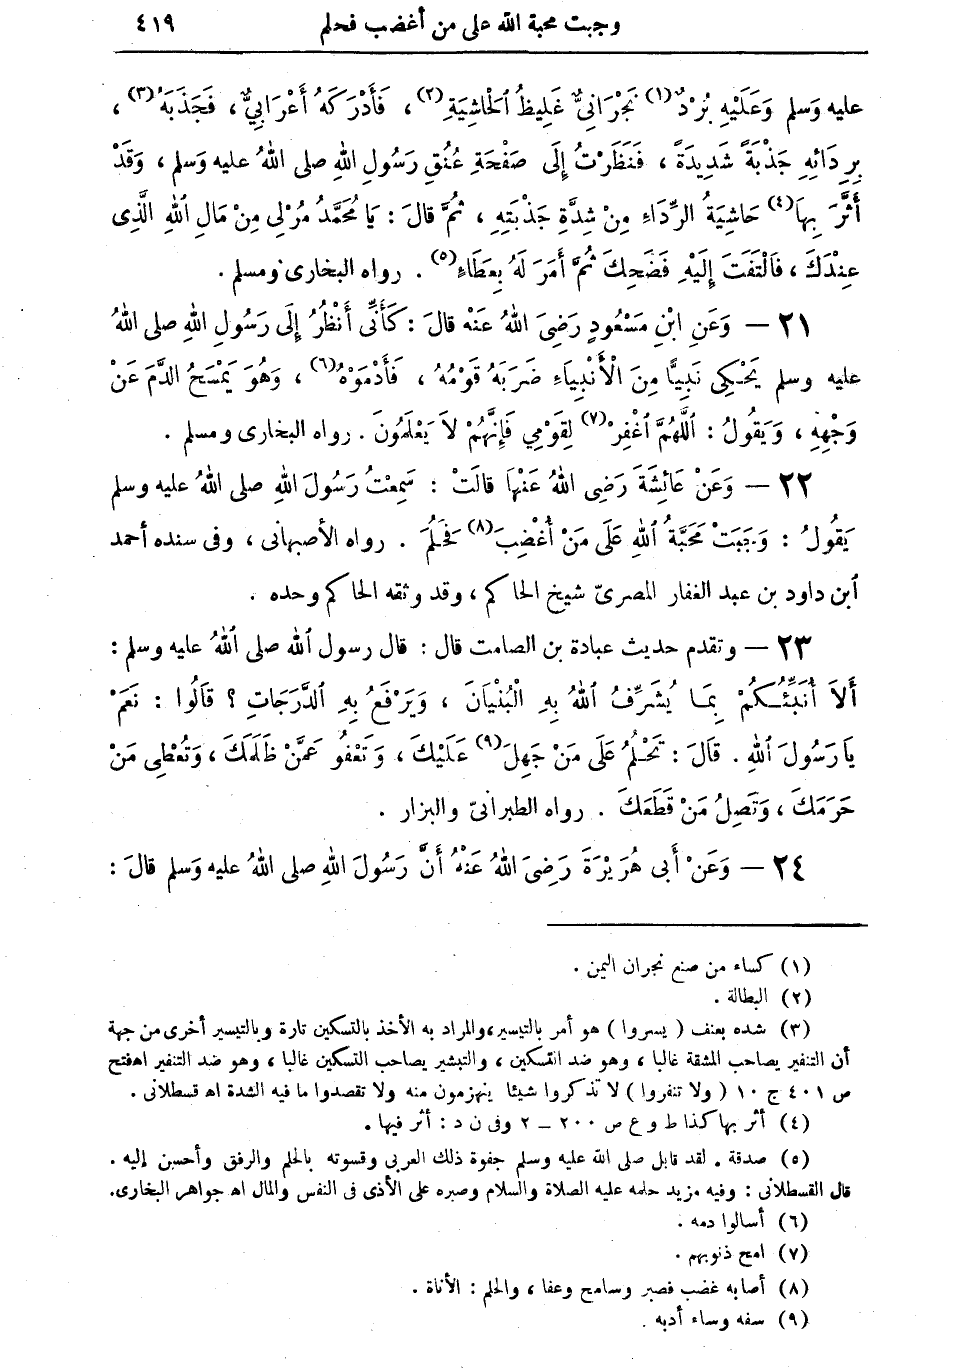 وجبت محبة الله على من أغضب فحلم ٤١٩
عليه وسلم وَعَلَيْهِ بُرْدٌ(١) نَجْرَانِيٌّ غَلِيظُ ٱلْحَاشِيَةِ(٢) ، فَأَدْرَكَهُ أَعْرَابِيٌّ ، فَجَذَبَهُ(٣) ،
بِرِدَائِهِ جَذْبَةً شَدِيدَةً ، فَنَظَرْتُ إِلَى صَفْحَةِ عُنُقِ رَسُولِ اللهِ صلى اللهُ عليه وَسلم ، وَقَدْ
أَثَّرَ بِهَا(٤) حَاشِيَةُ الرِّدَاءِ مِنْ شِدَّةِ جَذْبَتِهِ ، ثُمَّ قالَ : يَا مُحَمَّدُ مُرْ لِى مِنْ مَالِ اللهِ الَّذِى
عِنْدَكَ ، فَالْتَفَتَ إِلَيْهِ فَضَحِكَ ثُمَّ أَمَرَ لَهُ بِعَطَاءٍ(٥) . رواه البخارى ومسلم .
٢١ — وَعَنِ ابْنِ مَسْعُودٍ رَضِىَ اللهُ عَنْه قالَ : كَأَنِّى أَنْظُرُ إِلَى رَسُولِ اللهِ صلى اللهُ
عليه وسلم يَحْكِى نَبِيًّا مِنَ الْأَنْبِيَاءِ ضَرَبَهُ قَوْمُهُ ، فَأَدْمَوْهُ(٦) ، وَهُوَ يَمْسَحُ الدَّمَ عَنْ
وَجْهِهِ ، وَيَقُولُ : اللَّهُمَّ ٱغْفِرْ(٧) لِقَوْمِي فَإِنَّهُمْ لاَ يَعْلَمُونَ . رواه البخارى ومسلم .
٢٢ — وَعَنْ عَائِشَةَ رَضِىَ اللهُ عَنْهَا قالَتْ : سَمِعْتُ رَسُولَ اللهِ صلى اللهُ عليه وسلم
يَقُولُ : وَجَبَتْ مَحَبَّةُ ٱللهِ عَلَى مَنْ أُغْضِبَ(٨) فَحَلُمَ . رواه الأصبهانى ، وفى سنده أحمد
ٱبن داود بن عبد الغفار المصرىّ شيخ الحاكم ، وقد وثقه الحاكم وحده .
٢٣ — وتقدم حديث عبادة بن الصامت قال : قال رسول ٱللهِ صلى ٱللهُ عليه وسلم :
أَلاَ أُنَبِّئُكُمْ بِمَا يُشَرِّفُ ٱللهُ بِهِ الْبُنْيَانَ ، وَيَرْفَعُ بِهِ ٱلدَّرَجَاتِ ؟ قَالُوا : نَعَمْ
يَا رَسُولَ ٱللهِ . قَالَ : تَحْلُمُ عَلَى مَنْ جَهِلَ(٩) عَلَيْكَ ، وَتَعْفُو عَمَّنْ ظَلَمَكَ ، وَتُعْطِى مَنْ
حَرَمَكَ ، وَتَصِلُ مَنْ قَطَعَكَ . رواه الطبرانىّ والبزار .
٢٤ — وَعَنْ أَبِى هُرَيْرَةَ رَضِىَ اللهُ عَنْهُ أَنَّ رَسُولَ اللهِ صلى اللهُ عليه وَسلم قالَ :
(١) كساء من صنع نجران اليمن .
(٢) البطالة .
(٣) شده بعنف ( يسروا ) هو أمر بالتيسير، والمراد به الأخذ بالتسكين تارة وبالتيسير أخرى من جهة
أن التنفير يصاحب المشقة غالبا ، وهو ضد التسكين ، والتبشير يصاحب التسكين غالبا ، وهو ضد التنفير اه فتح
ص ٤٠١ ج ١٠ ( ولا تنفروا ) لا تذكروا شيئا ينهزمون منه ولا تقصدوا ما فيه الشدة اه قسطلانى .
(٤) أثر بها كذا ط وع ص ٢٠٠ — ٢ وفى ن د : أثر فيها .
(٥) صدقة . لقد قابل صلى الله عليه وسلم جفوة ذلك العربى وقسوته بالحلم والرفق وأحسن إليه .
قال القسطلانى : وفيه مزيد حلمه عليه الصلاة والسلام وصبره على الأذى فى النفس والمال اه جواهر البخارى.
(٦) أسالوا دمه .
(٧) امح ذنوبهم .
(٨) أصابه غضب فصبر وسامح وعفا ، والحلم : الأناة .
(٩) سفه وساء أدبه .